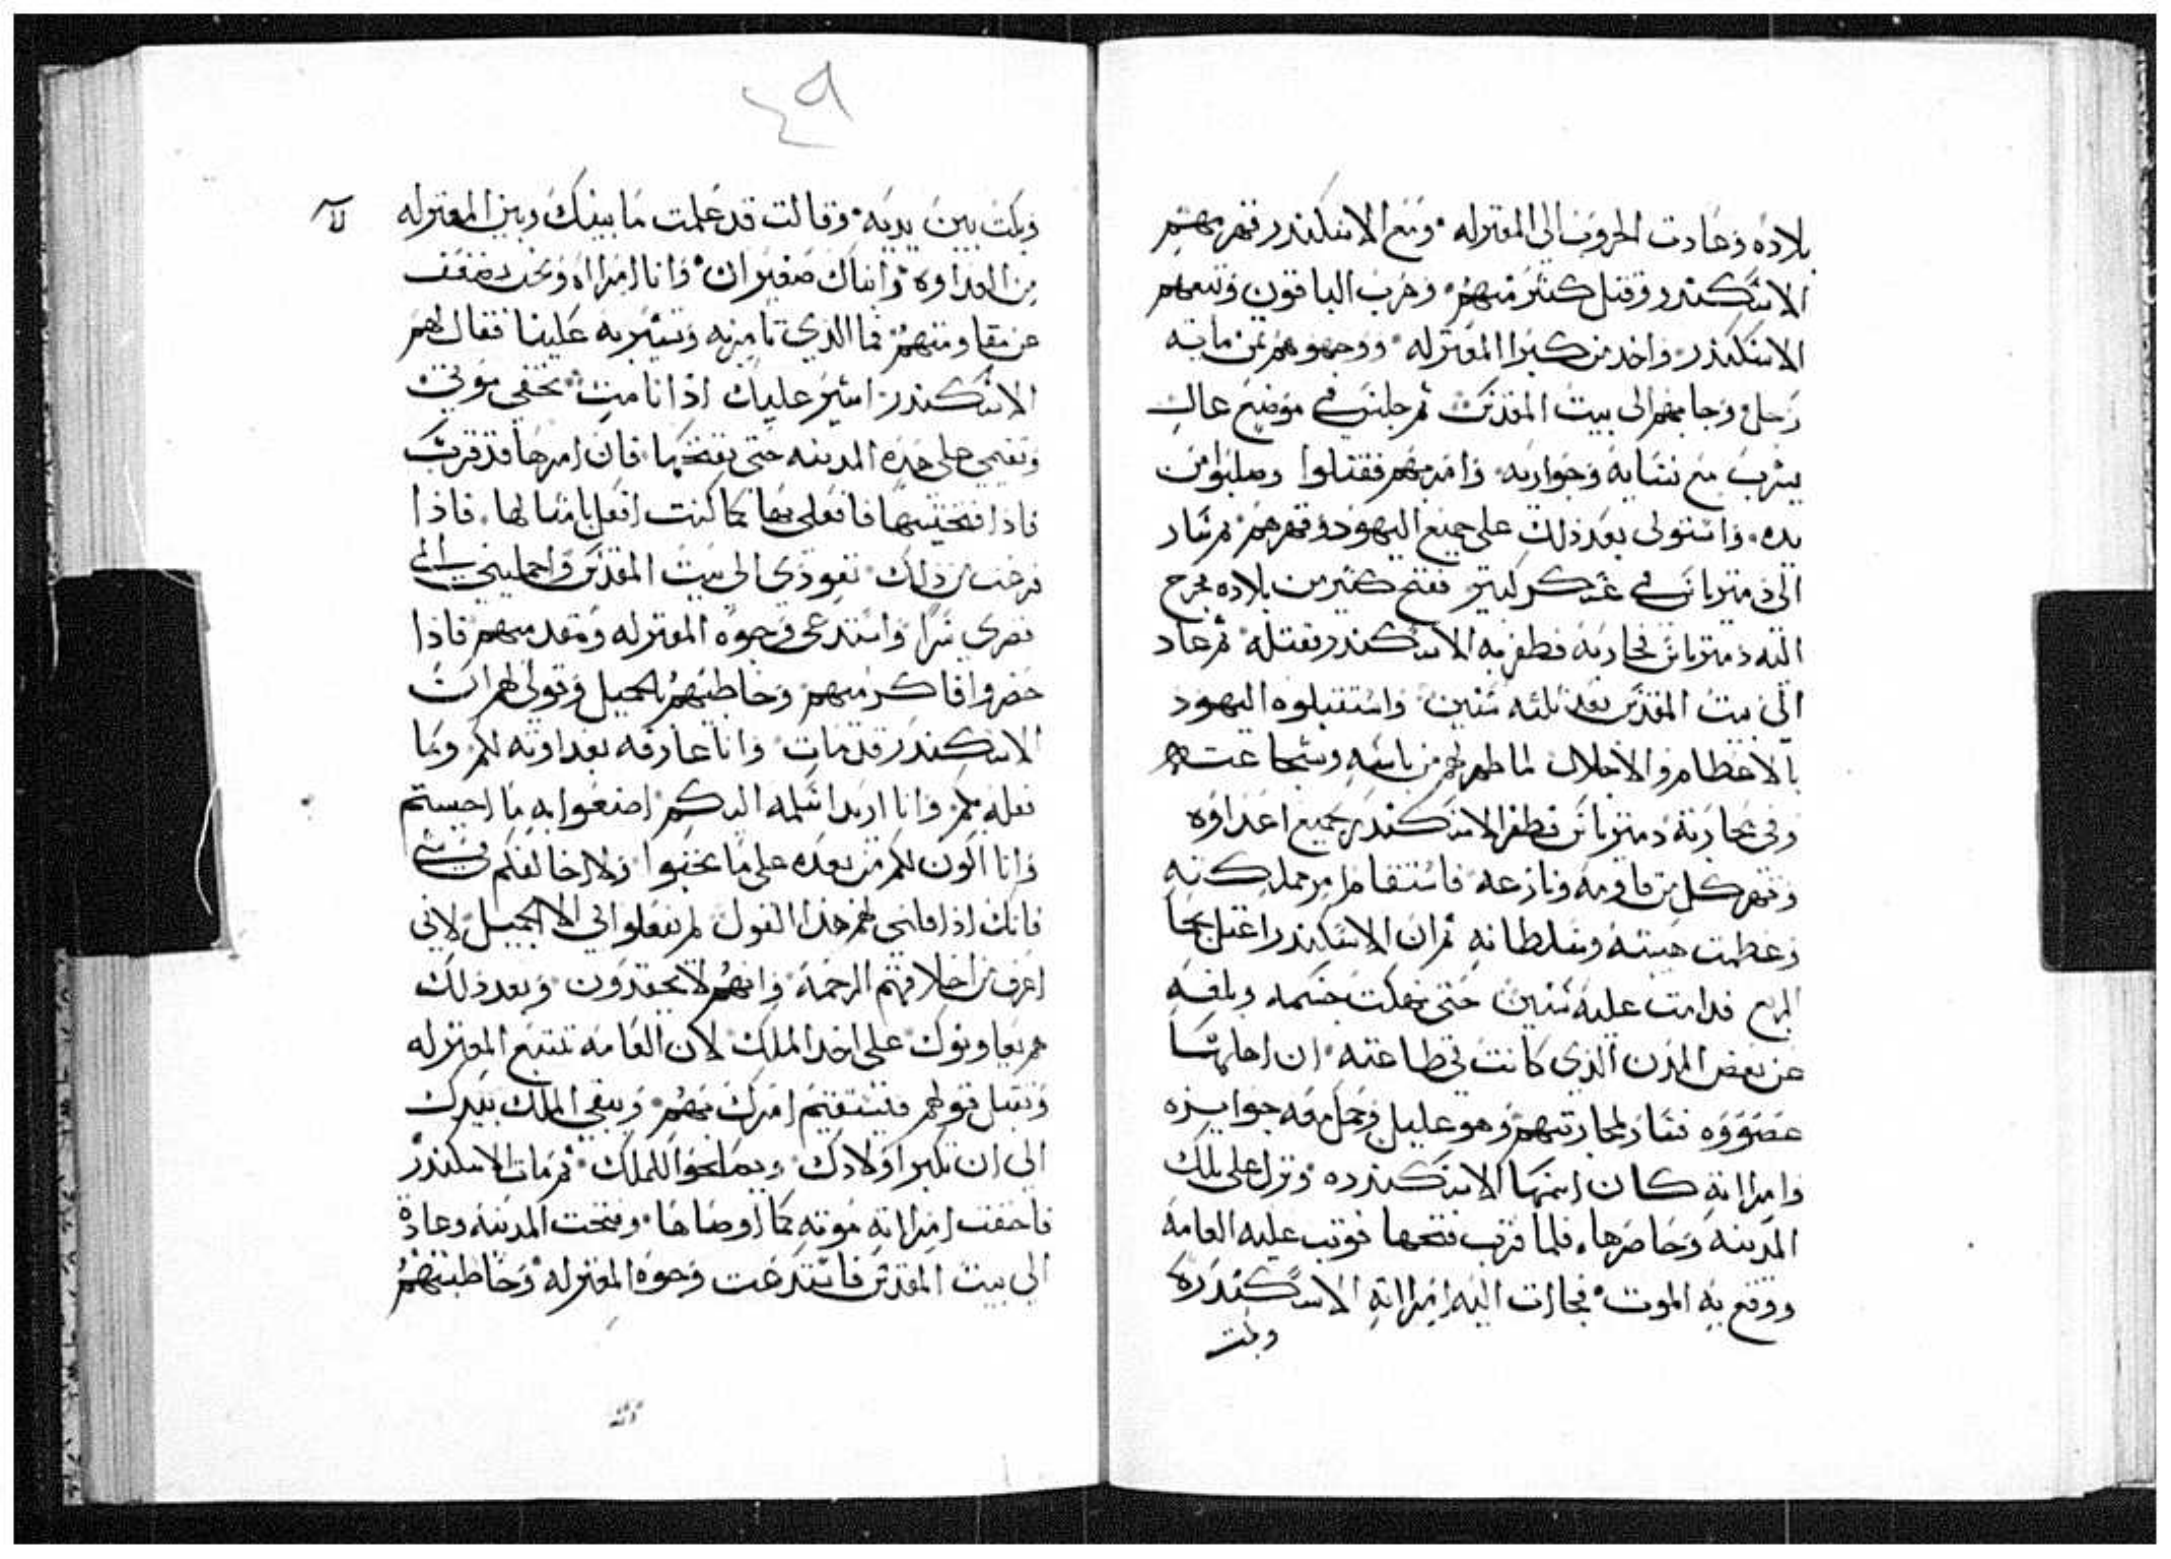 بلاده وعادت الحروب الى المعتزله ومع الاسكندر فقهرهم
الاسكندر وقتل كثير منهم وهرب الباقون وتبعهم
الاسكندر واخد من كبرا المعتزله ووجوههم ثمن مايه
رجل وجا بهم الى بيت المقدس ثم جلس في موضع عال
يشرب مع نسايه وجواريه وامر بهم فقتلوا وصلبوا بين
يده واستولى بعد ذلك على جميع اليهود وقهرهم ثم سار
الى دمتريانس في عسكر كبير ففتح كثير من بلاده فخرج
اليه دمتريانس لمحاربته فظفر به الاسكندر فقتله ثم عاد
الى بيت المقدس بعد ثلثه سنين واستقبلوه اليهود
بالاعظام والاجلال لما ظهر لهم من باسه وشجاعته
وفي محاربته دمتريانس فظفر الاسكندر بجميع اعداوه
وقهر كل من قاومه ونازعه فاستقام امر مملكته
وعظمت هيبته وسلطانه ثم ان الاسكندر اعتل بحما
الربع فدامت عليه سنين حتى نهكت جسمه وبلغه
عن بعض المدن الذي كانت في طاعته ان اهلها
عصووه فسار لمحاربتهم وهو عليل وحمل معه جواريه
وامراته كان اسمها الاسكندره ونزل على تلك
المدينه وحاصرها فلما قرب فتحها قويت عليه العله
ووقع به الموت فجاات اليه امراته الاسكندره
وبكت
٤٩
وبكت بين يديه وقالت قد علمت ما بينك وبين المعتزله
من العداوه وابناك صغيران وانا امراه ونحن نضعف
عن مقاومتهم فما الذي تامر به وتشير به علينا فقال لهم
الاسكندر اشير عليك اذا انا مت تخفي موتي
وتقيمي على هذه المدينه حتى تفتحها فان امرها قد قرب
فاذا فتحتيها فافعلي بها كما كنت افعل بامثالها فاذا
فرغت من ذلك تعودي الى بيت المقدس واحمليني الى
قصري سرا واستدعي وجوه المعتزله ومقدميهم فاذا
حضروا فاكرميهم وخاطبيهم بالجميل وقولي لهم ان
الاسكندر قد مات وانا عارفه بعداوته لكم وبما
فعله بكم وانا اريد اسلمه اليكم اصنعوا به ما احببتم
وانا اكون لكم من بعده على ما تحبوا ولا اخالفكم في شي
فانك اذا قلتي لهم هذا القول لم يفعلوا الي الا الجميل لاني
اعرف من اخلاقهم الرحمه وانهم لا يحقدون وبعد ذلك
هم يعاونوك على اخد الملك لان العامه تتبع المعتزله
وتقبل قولهم فيستقيم امرك بهم ويبقى الملك بيدك
الى ان تكبر اولادك ويصلحوا للملك ثم مات الاسكندر
فاخفت امراته موته كما اوصاها وفتحت المدينه وعادة
الى بيت المقدس فاستدعت وجوه المعتزله وخاطبتهم